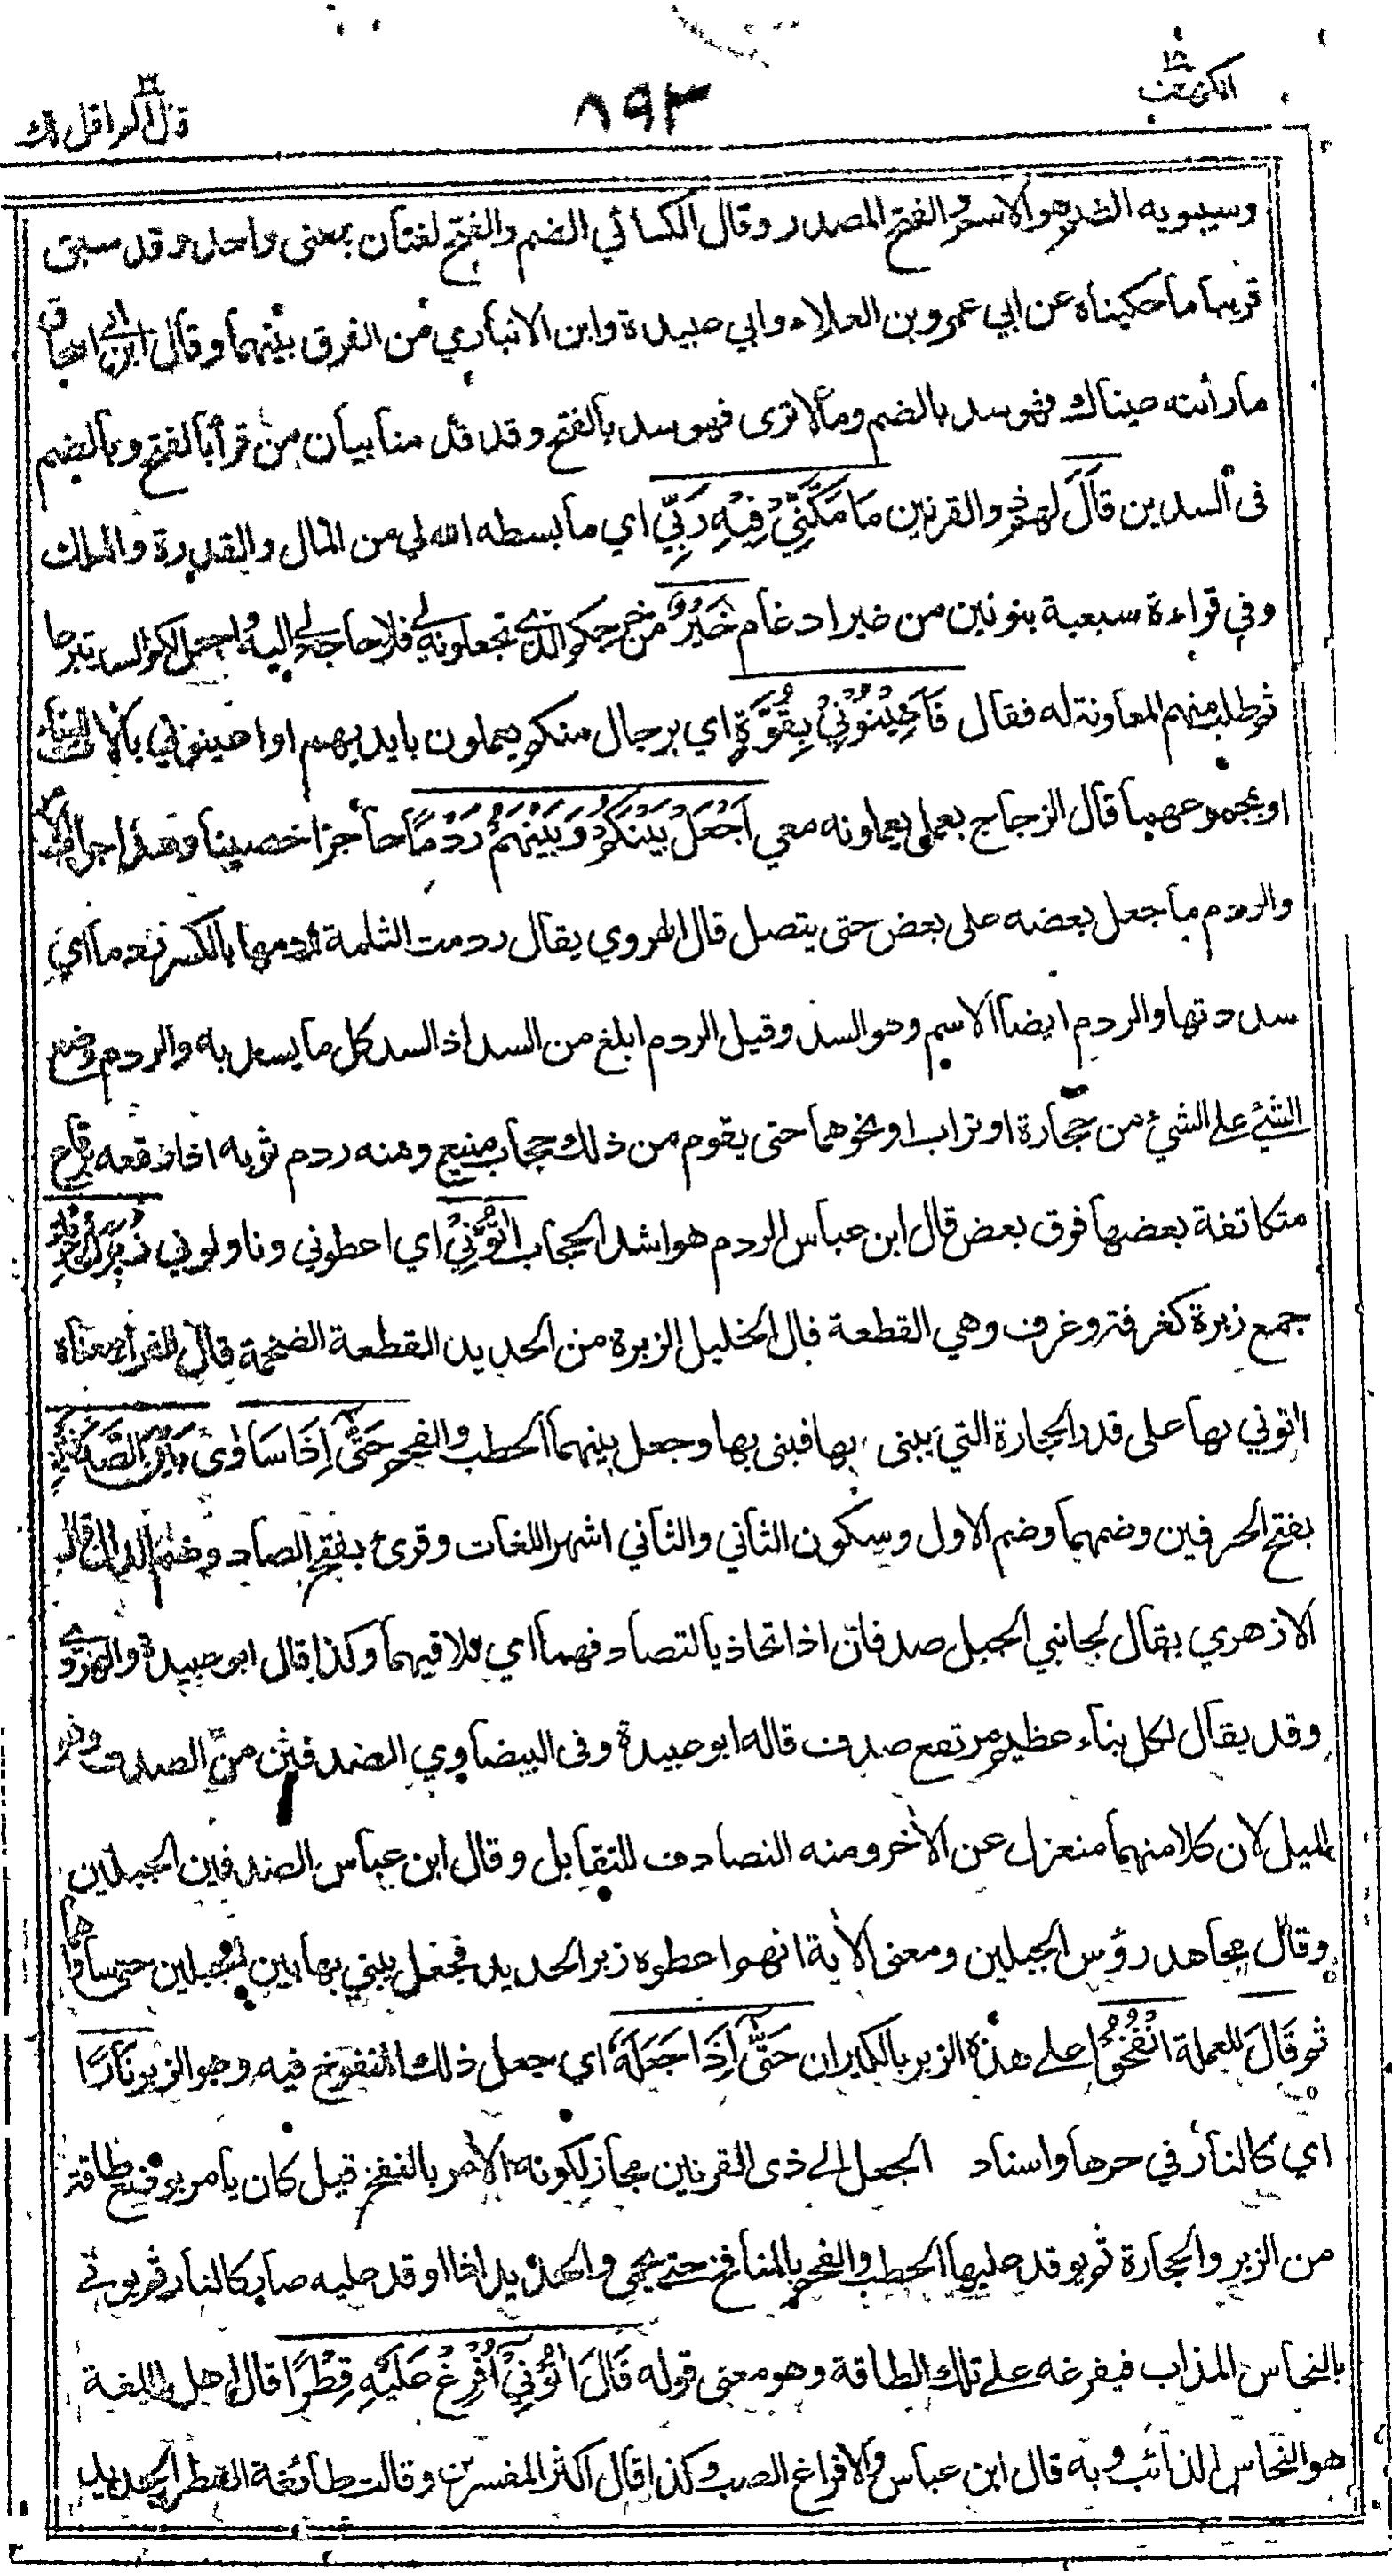 الكهف ١٨
٨٩٣
قال الم اقل لك
وسيبويه الضم هو الاسم والفتح المصدر وقال الكسائي الضم والفتح لغتان بمعنى واحد وقد سبق
قريبا ما حكيناه عن ابي عمرو بن العلاء وابي عبيدة وابن الانباري من الفرق بينهما وقال ابن ابي اسحاق
ما رأته عيناك فهو سد بالضم وما لا ترى فهو سد بالفتح وقد قدمنا بيان من قرأ بالفتح وبالضم
فى السدين قَالَ لهم ذو القرنين مَا مَكَّنِّيْ فِيْهِ رَبِّيْ اي ما بسطه الله لي من المال والقدرة والملك
وفي قراءة سبعية بنونين من غير ادغام خَيْرٌ من خرجكم الذي تجعلونه لي فلا حاجة لي اليه اجعل لكم السد تبرعا
ثم طلب منهم المعاونة له فقال فَاَعِيْنُوْنِيْ بِقُوَّةٍ اي برجال منكم يعملون بايديهم او اعينوني بآلات البناء
او بمجموعهما قال الزجاج بعمل يعملونه معي اَجْعَلْ بَيْنَكُمْ وَبَيْنَهُمْ رَدْمًا حاجزا حصينا وهذا جواب الامر
والردم ما جعل بعضه على بعض حتى يتصل قال الهروي يقال ردمت الثلمة اردمها بالكسر ردما اي
سددتها والردم ايضا الاسم وهو السد وقيل الردم ابلغ من السد اذ السد كل ما يسد به والردم وضع
الشيء على الشيء من حجارة او تراب او نحوهما حتى يقوم من ذلك حجاب منيع ومنه ردم ثوبه اذا رقعه برقاع
متكاثفة بعضها فوق بعض قال ابن عباس الردم هو اشد الحجاب اٰتُوْنِيْ اي اعطوني وناولوني زُبَرَ الْحَدِيْدِ
جمع زبرة كغرفة وغرف وهي القطعة قال الخليل الزبرة من الحديد القطعة الضخمة قال الفراء معناه
اتوني بها على قدر الحجارة التي يبنى بها فبنى بها وجعل بينهما الحطب والفحم حَتّٰى اِذَا سَاوٰى بَيْنَ الصَّدَفَيْنِ
بفتح الحرفين وضمهما وضم الاول وسكون الثاني والثاني اشهر اللغات وقرئ بفتح الصاد وضم الدال قال
الازهري يقال لجانبي الجبل صدفان اذا تحاذيا لتصادفهما اي تلاقيهما وكذا قال ابو عبيدة والهروي
وقد يقال لكل بناء عظيم مرتفع صدف قاله ابو عبيدة وفى البيضاوي الصدفين من الصدف وهو
الميل لان كلا منهما منعزل عن الآخر ومنه التصادف للتقابل وقال ابن عباس الصدفين الجبلين
وقال مجاهد رؤس الجبلين ومعنى الآية انهم اعطوه زبر الحديد فجعل يبني بها بين الجبلين حتى ساواهما
ثم قَالَ للعملة انْفُخُوْا على هذه الزبر بالكيران حَتّٰى اِذَا جَعَلَهٗ اي جعل ذلك المنفوخ فيه وهو الزبر نَارًا
اي كالنار في حرها واسناد الجعل الى ذى القرنين مجاز لكونه الآمر بالنفخ قيل كان يامر بوضع طاقة
من الزبر والحجارة ثم يوقد عليها الحطب والفحم بالمنافخ حتى يحمى والحديد اذا اوقد عليه صار كالنار ثم يوتى
بالنحاس المذاب فيفرغه على تلك الطاقة وهو معنى قوله قَالَ اٰتُوْنِيْ اُفْرِغْ عَلَيْهِ قِطْرًا قال اهل اللغة
هو النحاس الذائب وبه قال ابن عباس والافراغ الصب وكذا قال اكثر المفسرين وقالت طائفة القطر الحديد